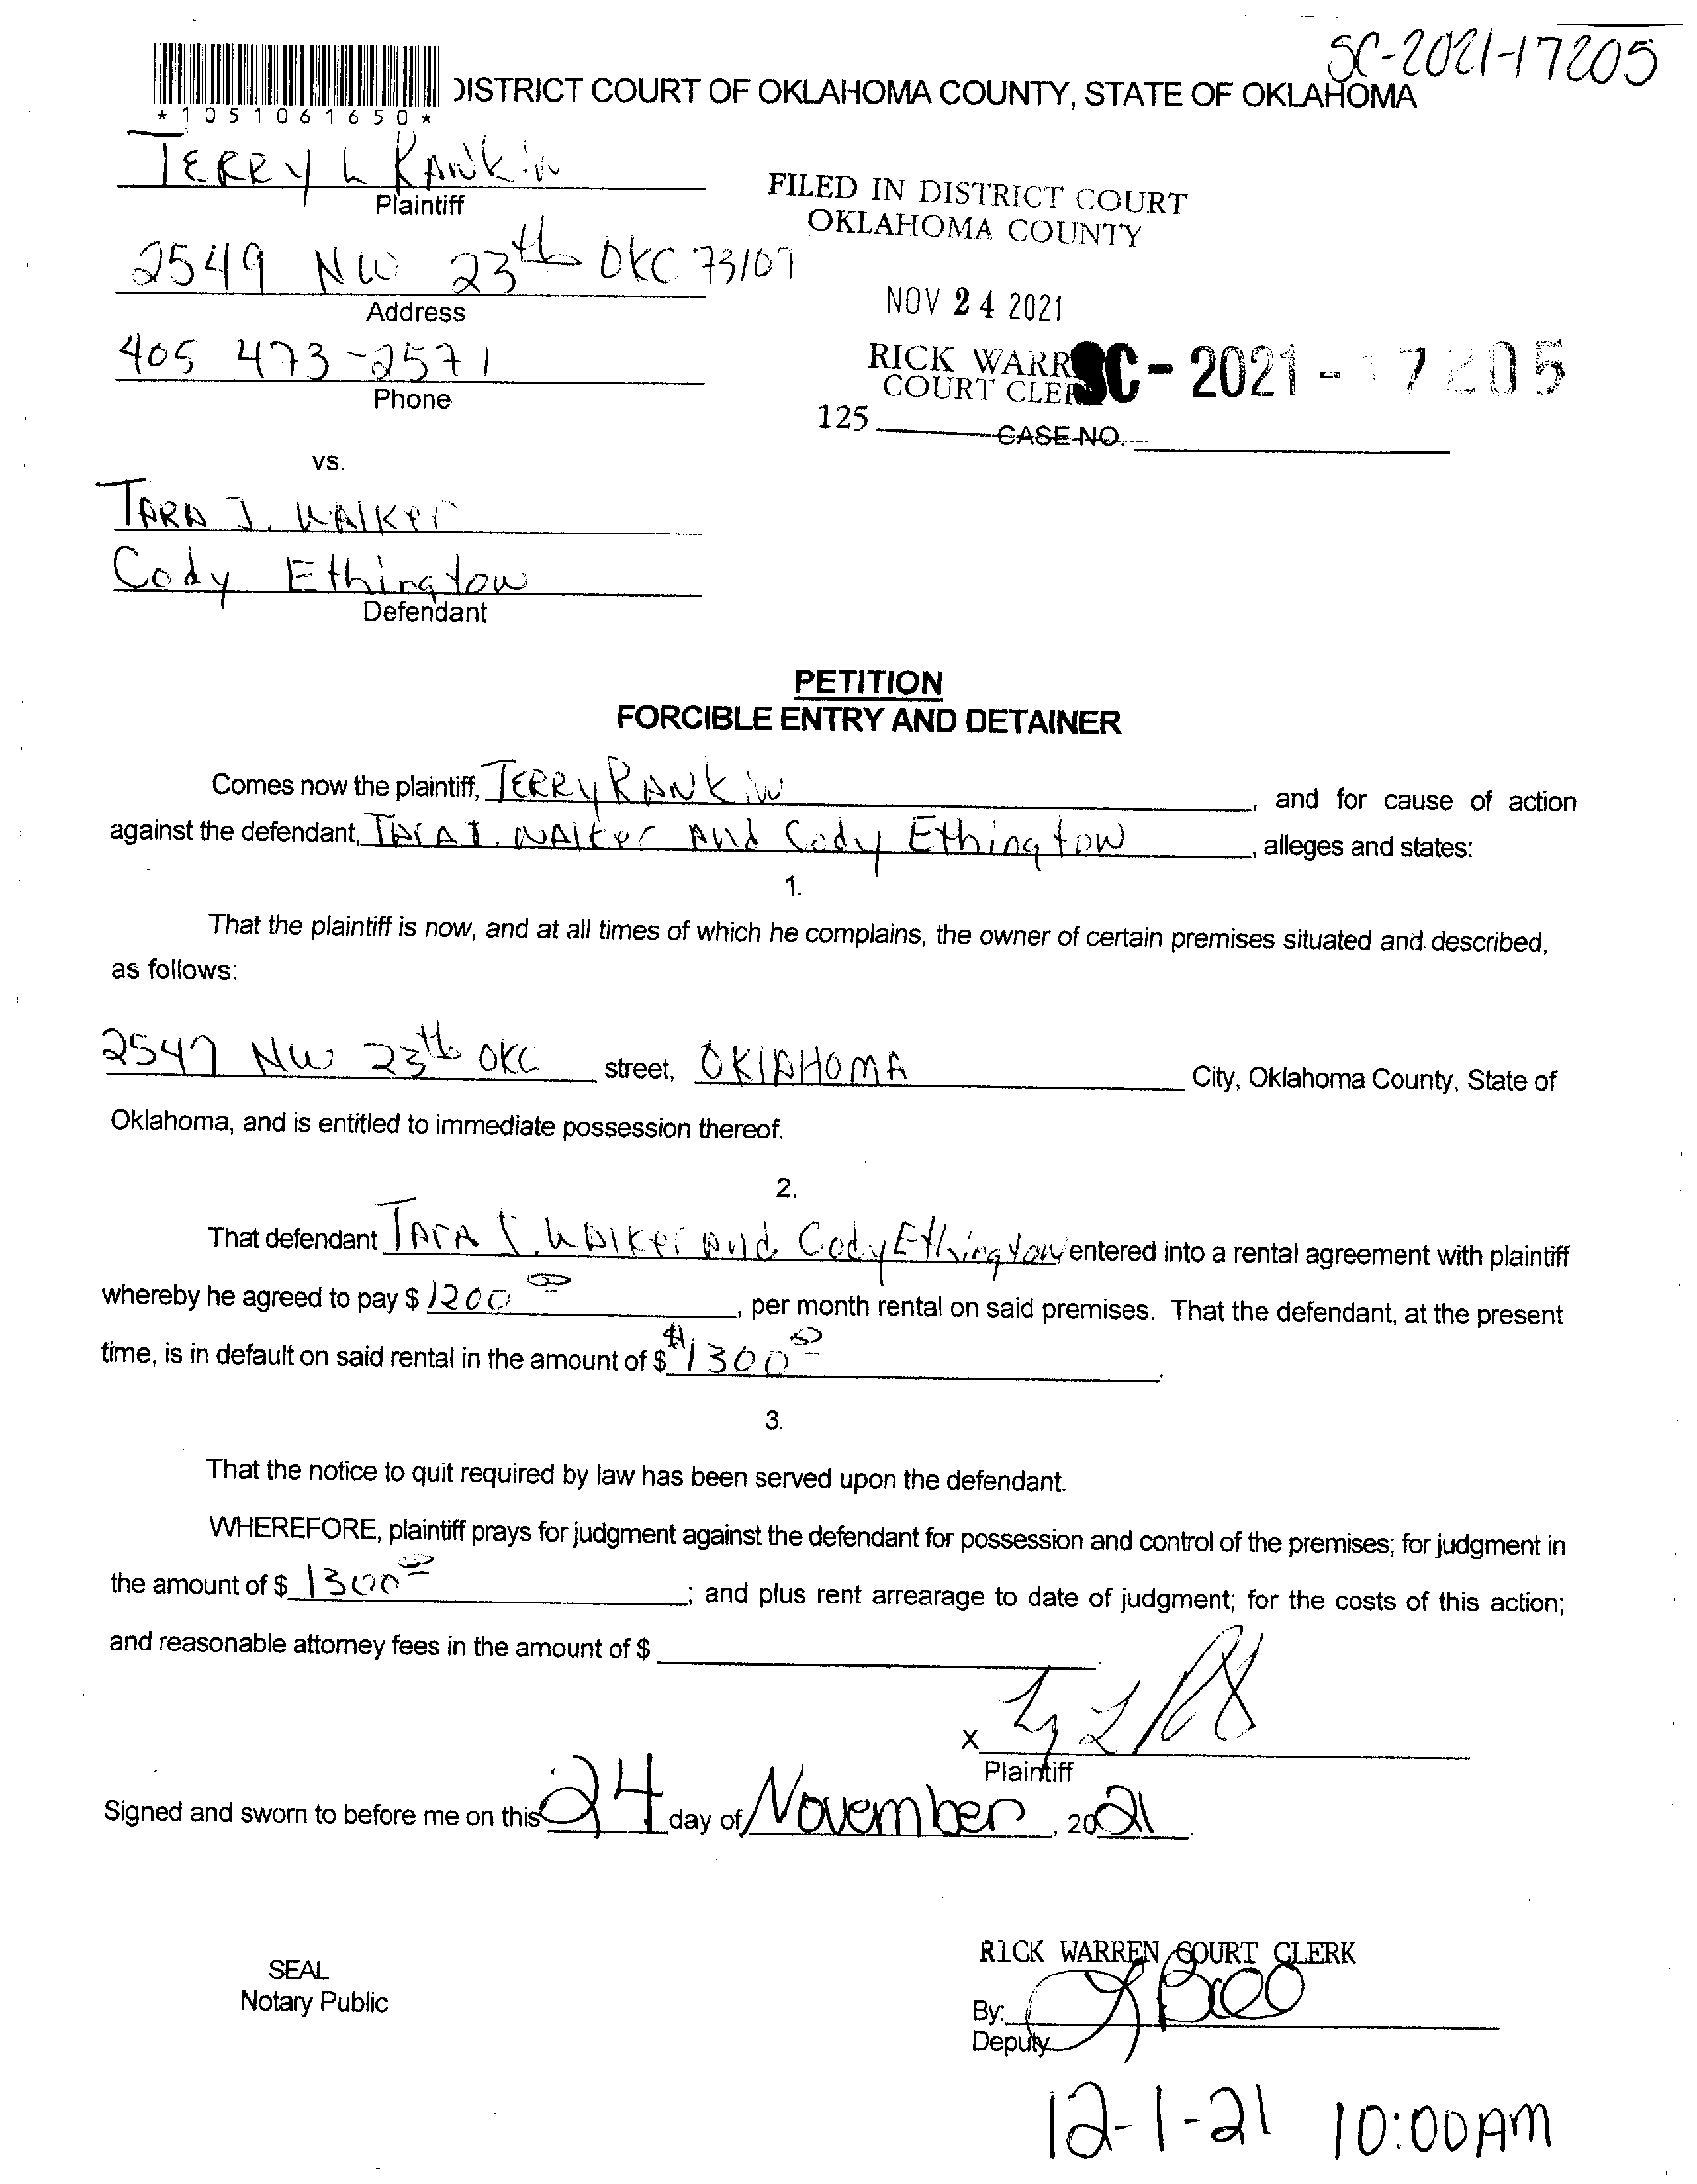 SC-2021-17205
DISTRICT COURT OF OKLAHOMA COUNTY, STATE OF OKLAHOMA
*1051061650*
TERRY L RANKIN
Plaintiff
FILED IN DISTRICT COURT
OKLAHOMA COUNTY
2549 NW 23th OKC 73107
Address
NOV 24 2021
405 473-2571
Phone
RICK WARR
COURT CLER
SC-2021-17205
125
CASE NO.
vs.
TARA J. WALKer
Cody Ethington
Defendant
PETITION
FORCIBLE ENTRY AND DETAINER
Comes now the plaintiff, TERRY RANKIN, and for cause of action
against the defendant, TArA J. WAlker And Cody Ethington, alleges and states:
1.
That the plaintiff is now, and at all times of which he complains, the owner of certain premises situated and described,
as follows:
2547 NW 23th OKC street, OKlAHOMA City, Oklahoma County, State of
Oklahoma, and is entitled to immediate possession thereof.
2.
That defendant TArA J. WAlker And Cody Ethington entered into a rental agreement with plaintiff
whereby he agreed to pay $ 1200 00, per month rental on said premises. That the defendant, at the present
time, is in default on said rental in the amount of $ $1300 00.
3.
That the notice to quit required by law has been served upon the defendant.
WHEREFORE, plaintiff prays for judgment against the defendant for possession and control of the premises; for judgment in
the amount of $ 1300 00; and plus rent arrearage to date of judgment; for the costs of this action;
and reasonable attorney fees in the amount of $
X
Plaintiff
Signed and sworn to before me on this 24 day of November, 2021.
SEAL
Notary Public
RICK WARREN COURT CLERK
By:
Deputy
12-1-21 10:00AM